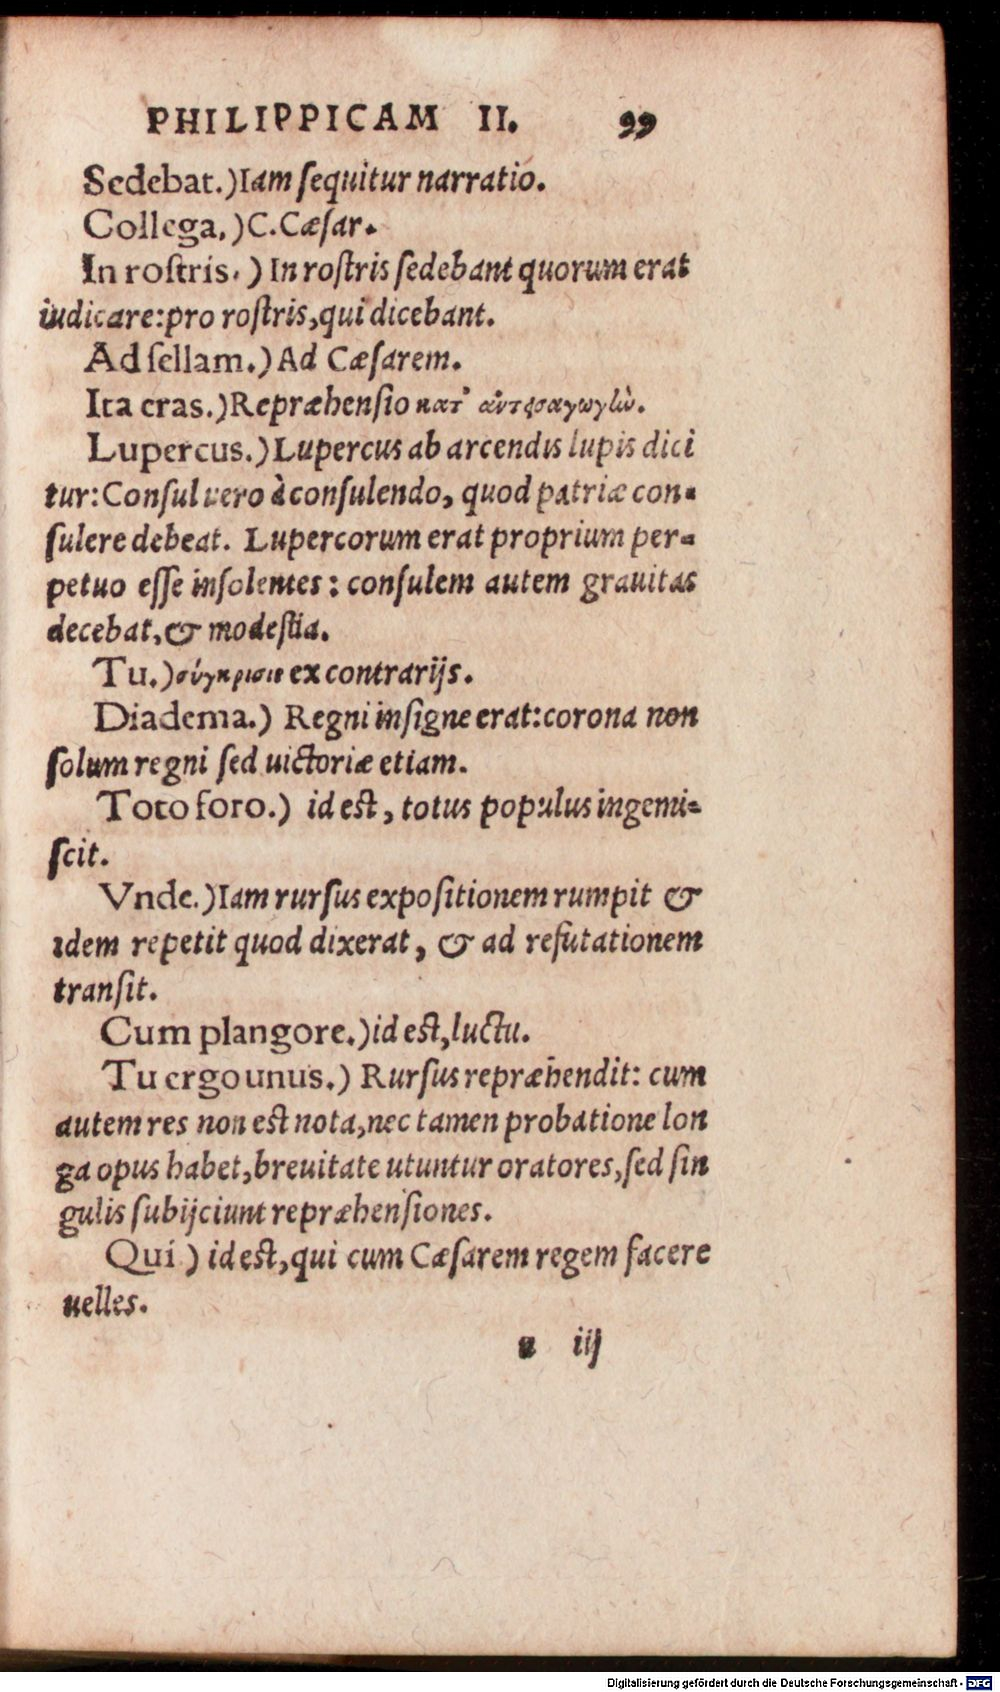 PHILIPPICAM II. 99
Sedebat.)Iam ſequitur narratio.
Collega.)C.Cæſar.
In roſtris.) In roſtris ſedebant quorum erat
iudicare:pro roſtris,qui dicebant.
Ad ſellam.)Ad Cæſarem.
Ita eras.)Repræhenſio κατ'
Lupercus.)Lupercus ab arcendis lupis dici
tur:Conſul vero à conſulendo, quod patriæ con-
ſulere debeat. Lupercorum erat proprium per-
petuo eſſe inſolentes: conſulem autem grauitas
decebat,& modeſtia.
Tu.)σύγκρισις ex contrarijs.
Diadema.) Regni inſigne erat:corona non
ſolum regni ſed uictoriæ etiam.
Toto foro.) id eſt, totus populus ingemi-
ſcit.
Vnde.)Iam rurſus expoſitionem rumpit &
idem repetit quod dixerat, & ad refutationem
tranſit.
Cum plangore.)id eſt,luctu.
Tu ergo unus.) Rurſus repræhendit: cum
autem res non eſt nota,nec tamen probatione lon
ga opus habet,breuitate utuntur oratores,ſed ſin
gulis ſubijciunt repræhenſiones.
Qui ) id eſt,qui cum Cæſarem regem facere
uelles.
n iij
Digitalisierung gefördert durch die Deutsche Forschungsgemeinschaft - DFG